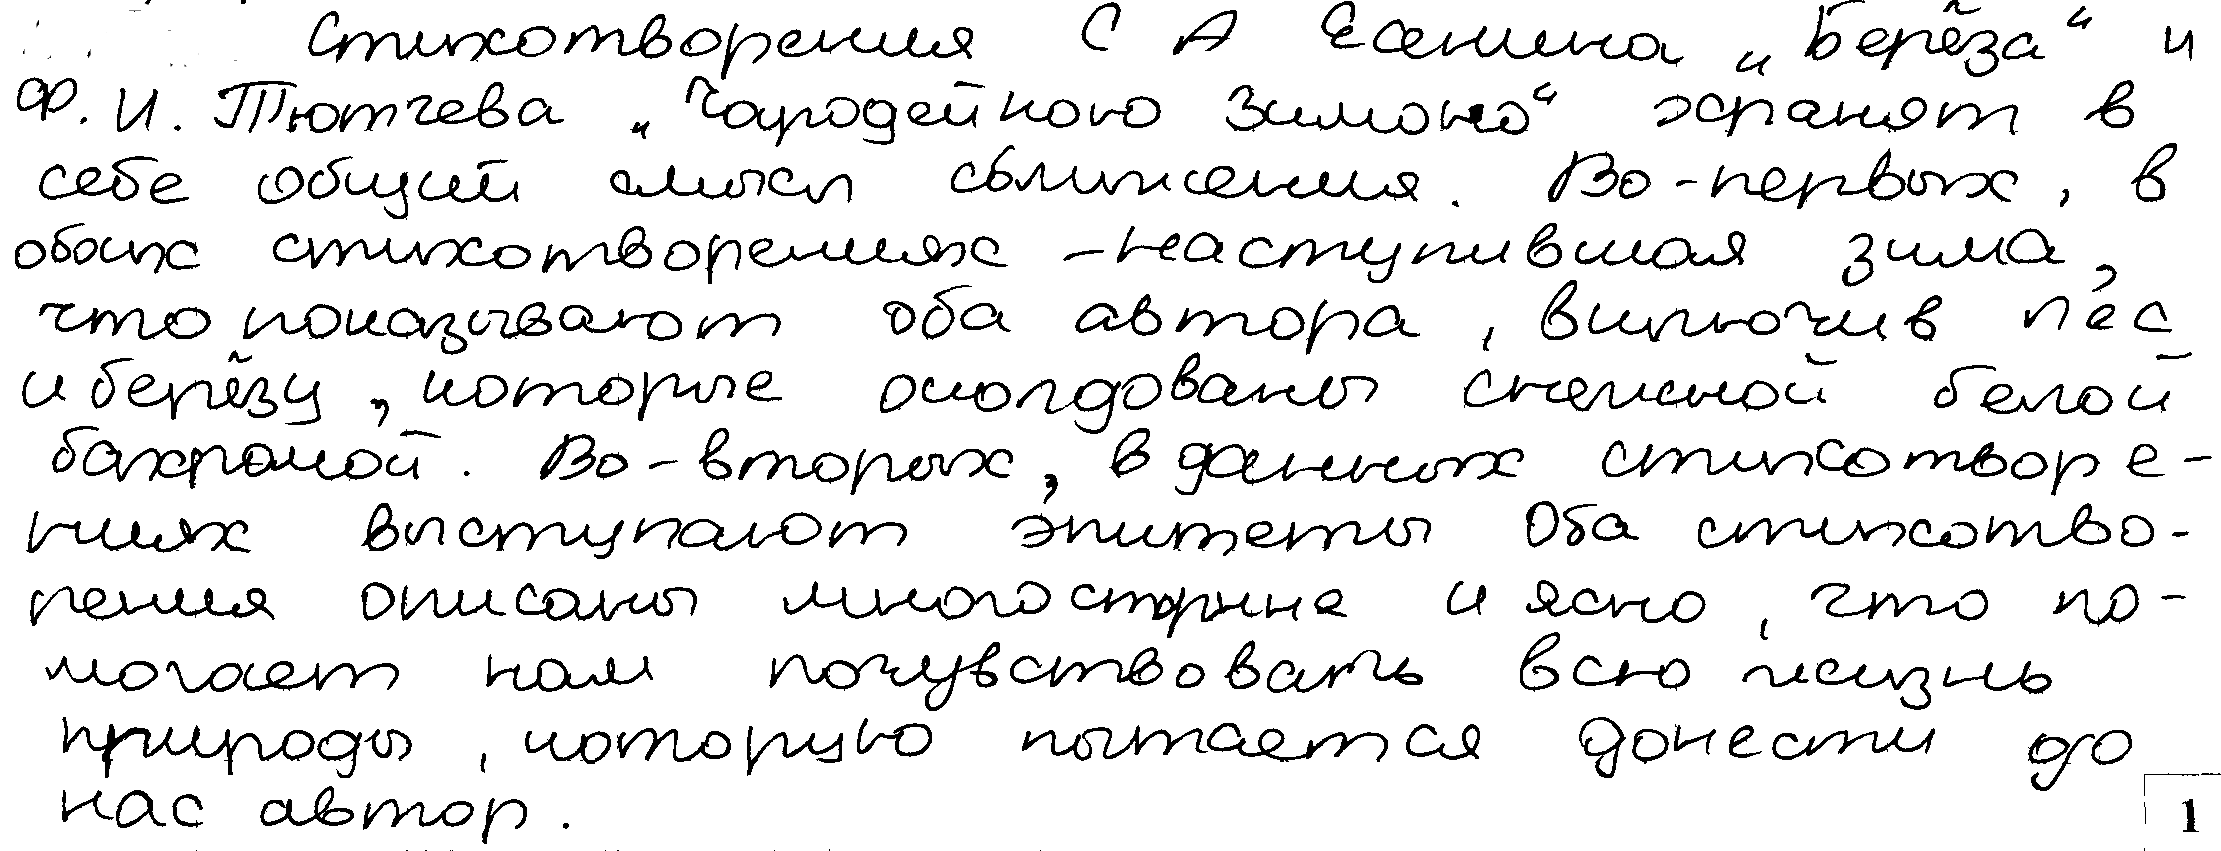 Стихотворения С А Есенина „Берёза“ и
Ф. И. Тютчева „Чародейкою Зимою“ хранят в
себе общий смысл сближения. Во-первых, в
обоих стихотворениях - наступившая зима,
что показывают оба автора, включив лес
и берёзу, которые околдованы снежной белой
бахромой. Во-вторых, в данных стихотворе-
ниях выступают эпитеты Оба стихотво-
рения описаны многостронне и ясно, что по-
могает нам почувствовать всю жизнь
природы, которую пытается донести до
нас автор.
1